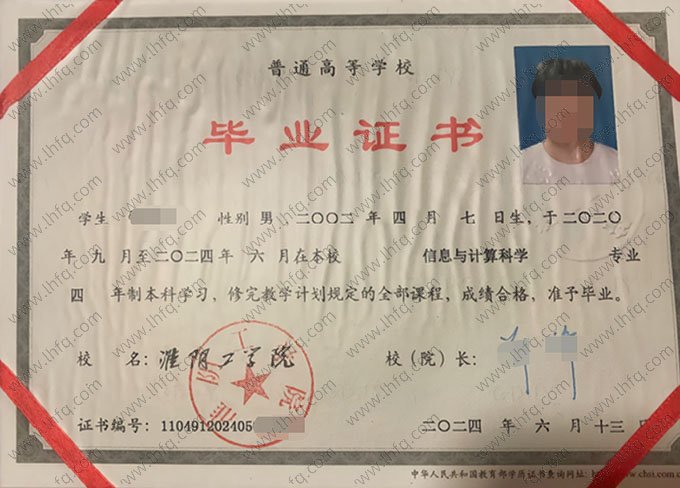 普通高等学校
毕业证书
学生 性别 男，二〇〇二年 四 月 七 日生，于二〇二〇
年 九 月至二〇二四年 六 月在本校 信息与计算科学 专业
四 年制本科学习，修完教学计划规定的全部课程，成绩合格，准予毕业。
校 名：淮阴工学院 校（院）长：
淮阴工学院
证书编号：110491202405 二〇二四年 六 月 十三 日
中华人民共和国教育部学历证书查询网址：http://www.chsi.com.cn
www.lhfq.com